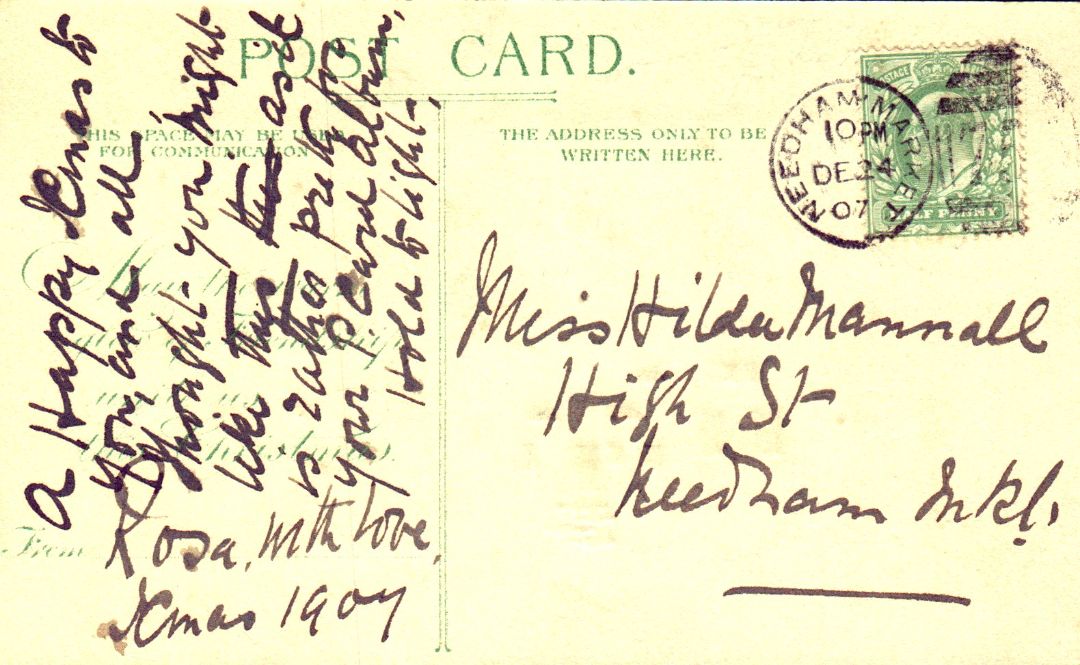 POST CARD.
THIS SPACE MAY BE USED
FOR COMMUNICATION
THE ADDRESS ONLY TO BE
WRITTEN HERE.
NEEDHAM-MARKET
10 PM
DE 24
07
POSTAGE
HALF PENNY
A Happy Xmas to
you, and all
Thought you might
like this as it
is rather pretty to
your p.card album,
Hold to light,
Rosa, with love,
Xmas 1907
From
Christmas.
Miss Hilda Mannall
High St
Needham Mkt.